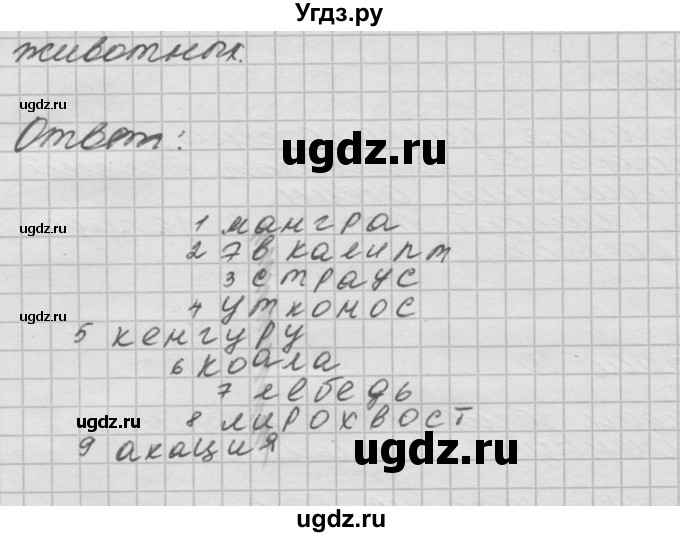 Угдз.ру
животных.
ugdz.ru
Ответ:
ugdz.ru
ugdz.ru
1 мангра
2 7вкалипт
3 страус
4 утконос
ugdz.ru
5 кенгуру
6 коала
7 лебедь
8 лирохвост
ugdz.ru
9 акация
ugdz.ru
ugdz.ru
ugdz.ru